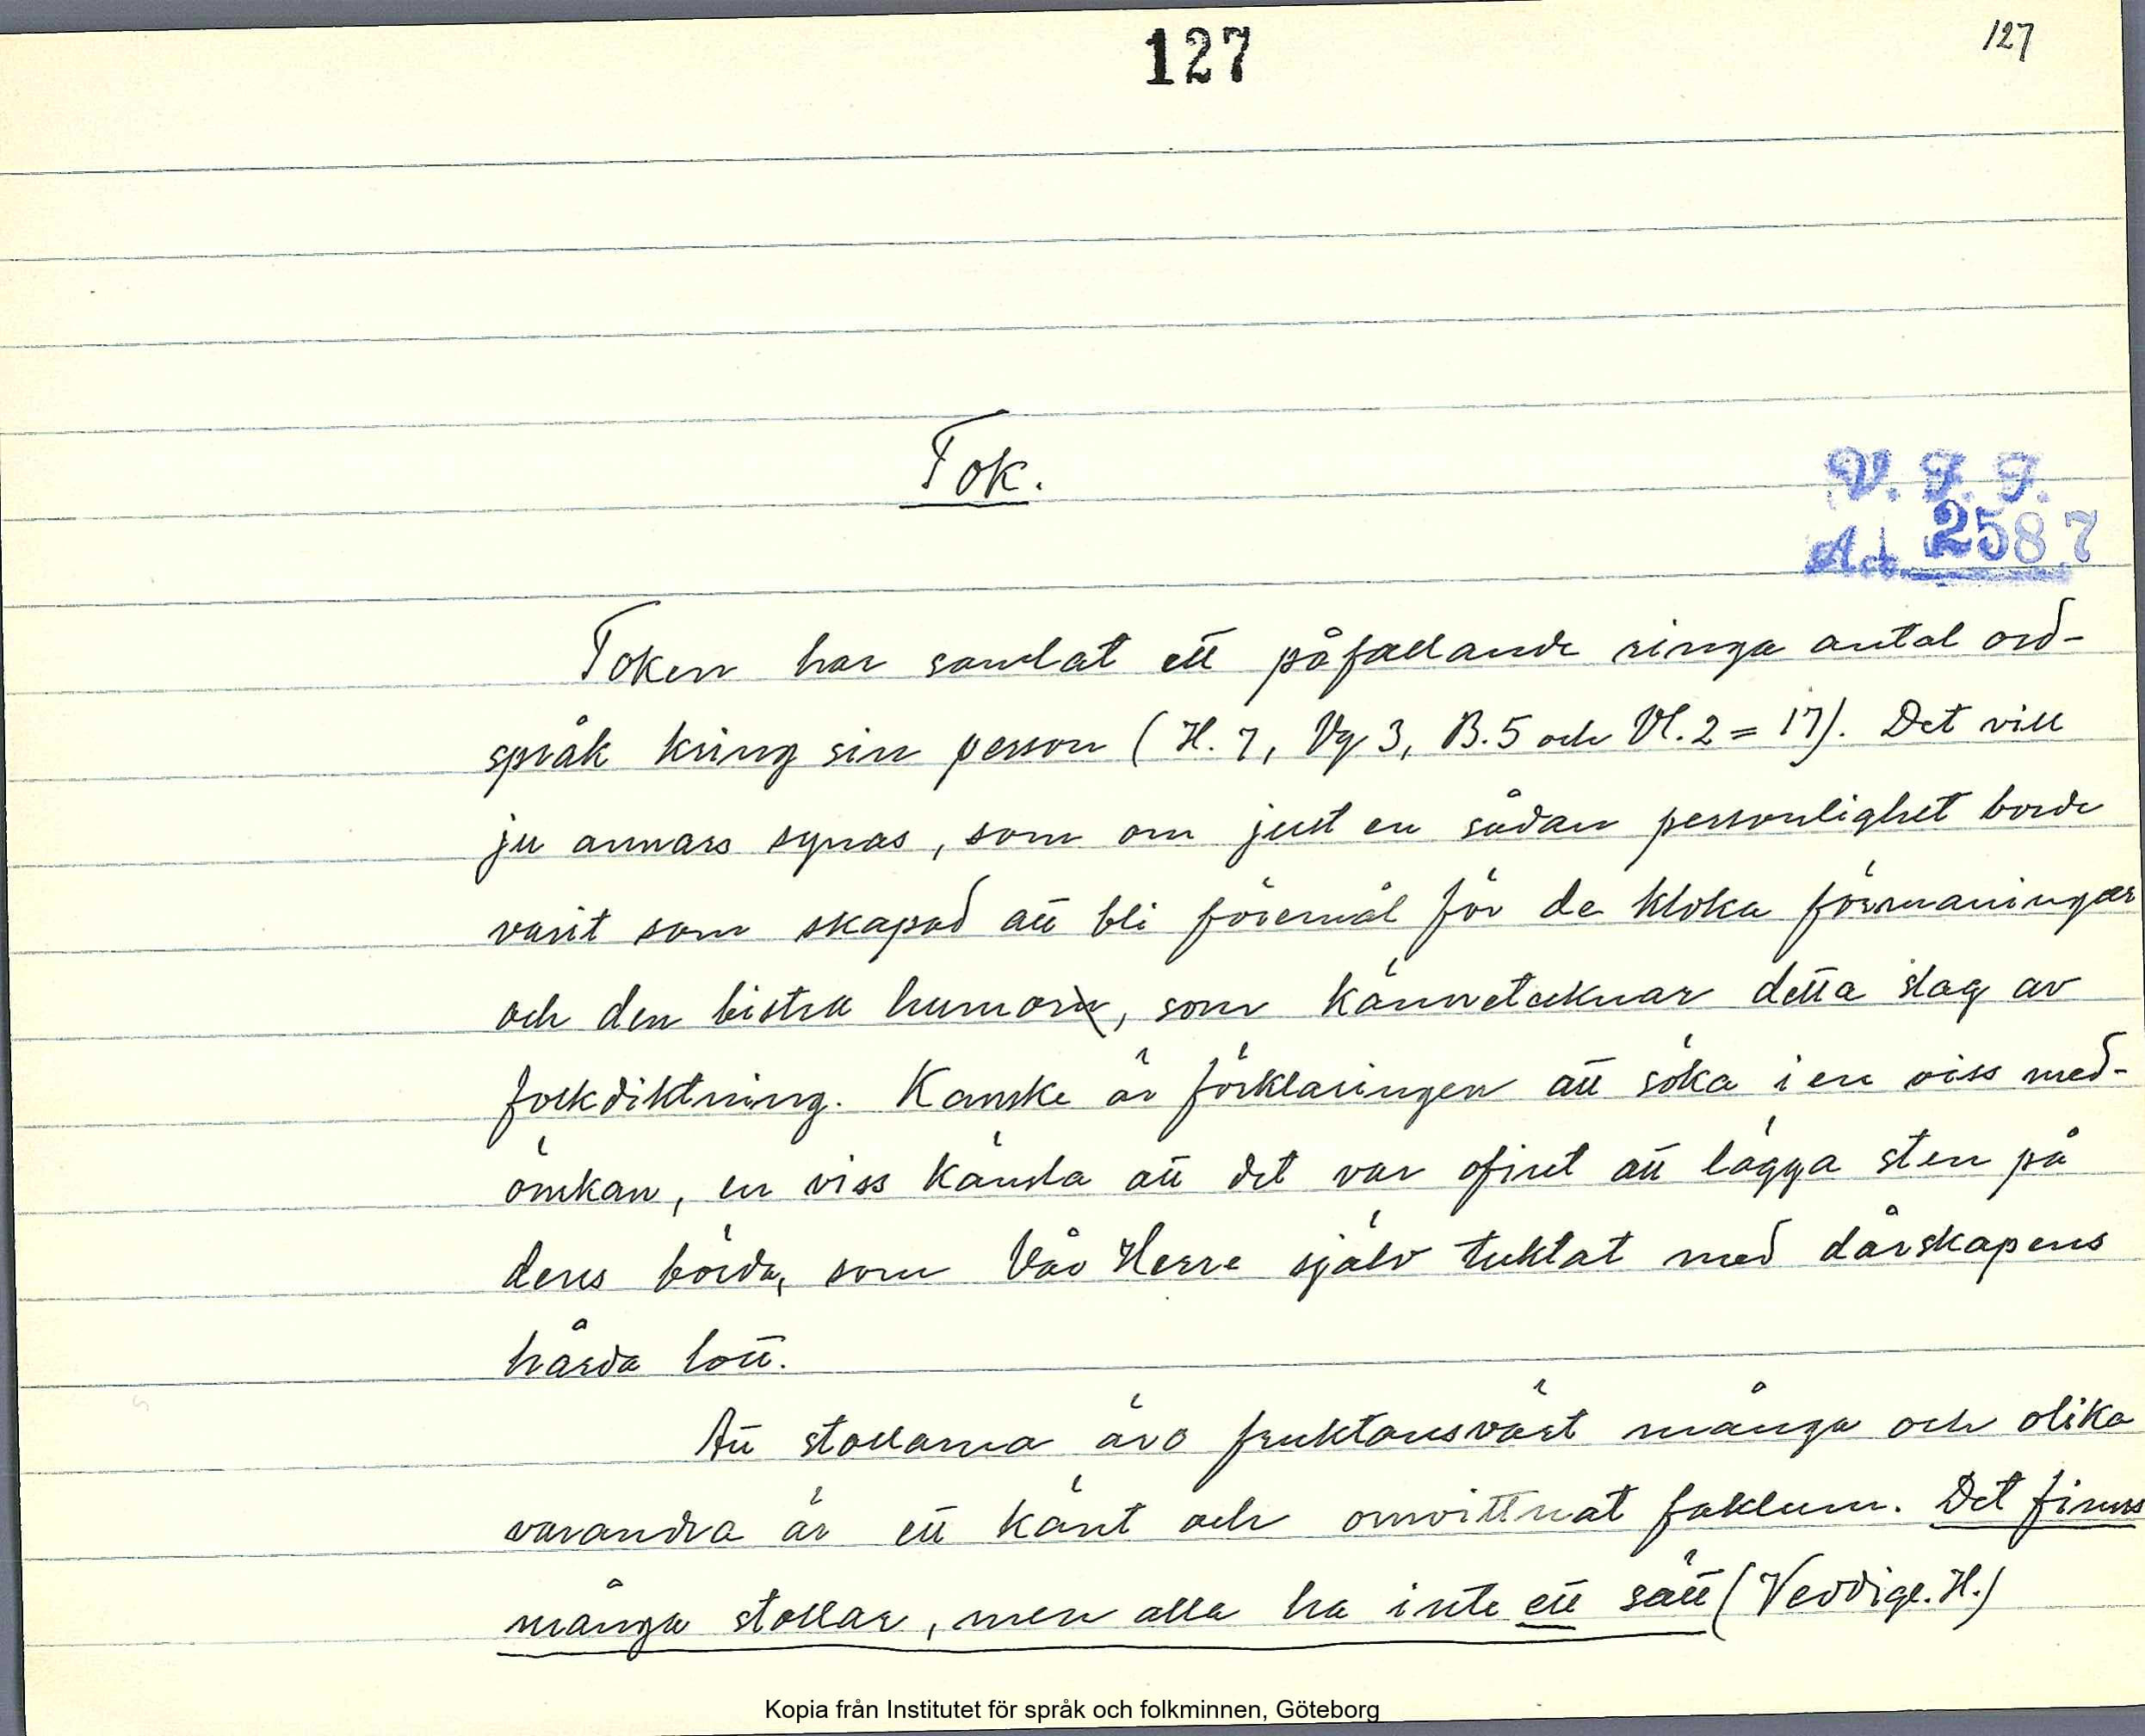 127
127
Tok.
V. F. F.
Acc. 2587
Token har samlat ett påfallande ringa antal ord-
språk kring sin person (H. 7, Vg 3, B. 5 och Vl. 2 = 17). Det vill
ju annars synas, som om just en sådan personlighet borde
varit som skapad att bli föremål för de kloka förmaningar
och den bistra humorn, som känneteknar detta slag av
folkdiktning. Kanske är förklaringen att söka i en viss med-
ömkan, en viss känsla att det var ofint att lägga sten på
deras börda, som Vår Herre själv tuktat med dårskapens
hårda lott.
Att stollarna äro fruktansvärt många och olika
varandra är ett känt och omvittnat faktum. Det finns
många stollar, men alla ha inte ett sätt (Veddige. H.)
Kopia från Institutet för språk och folkminnen, Göteborg